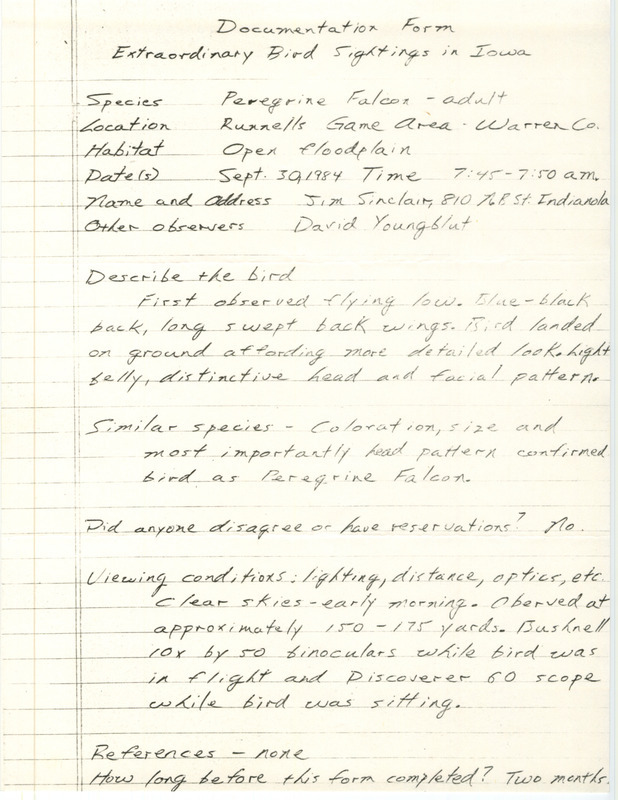 Documentation Form
Extraordinary Bird Sightings in Iowa
Species Peregrine Falcon - adult
Location Runnells Game Area - Warren Co.
Habitat Open floodplain
Date(s) Sept. 30, 1984 Time 7:45-7:50 a.m.
Name and address Jim Sinclair, 810 St. Indianola
Other observers David Youngblut
Describe the bird
First observed flying low. Blue-black
back, long swept back wings. Bird landed
on ground affording more detailed look. Light
belly, distinctive head and facial pattern.
Similar species - Coloration, size and
most importantly head pattern confirmed
bird as Peregrine Falcon.
Did anyone disagree or have reservations? No.
Viewing conditions: lighting, distance, optics, etc.
Clear skies - early morning. Oberved at
approximately 150 - 175 yards. Bushnell
10x by 50 binoculars while bird was
in flight and Discoverer 60 scope
while bird was sitting.
References - none
How long before this form completed? Two months.